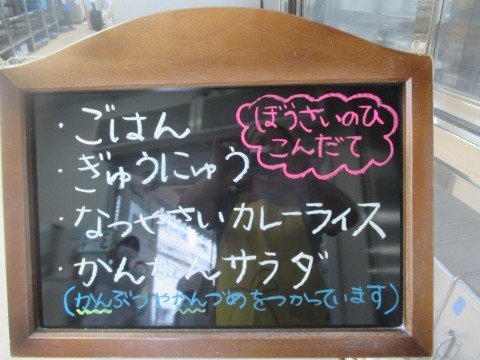 ぼうさいのひ
こんだて
・ごはん
・ぎゅうにゅう
・なつやさいカレーライス
・かんかんサラダ
(かんぶつやかんづめをつかっています)